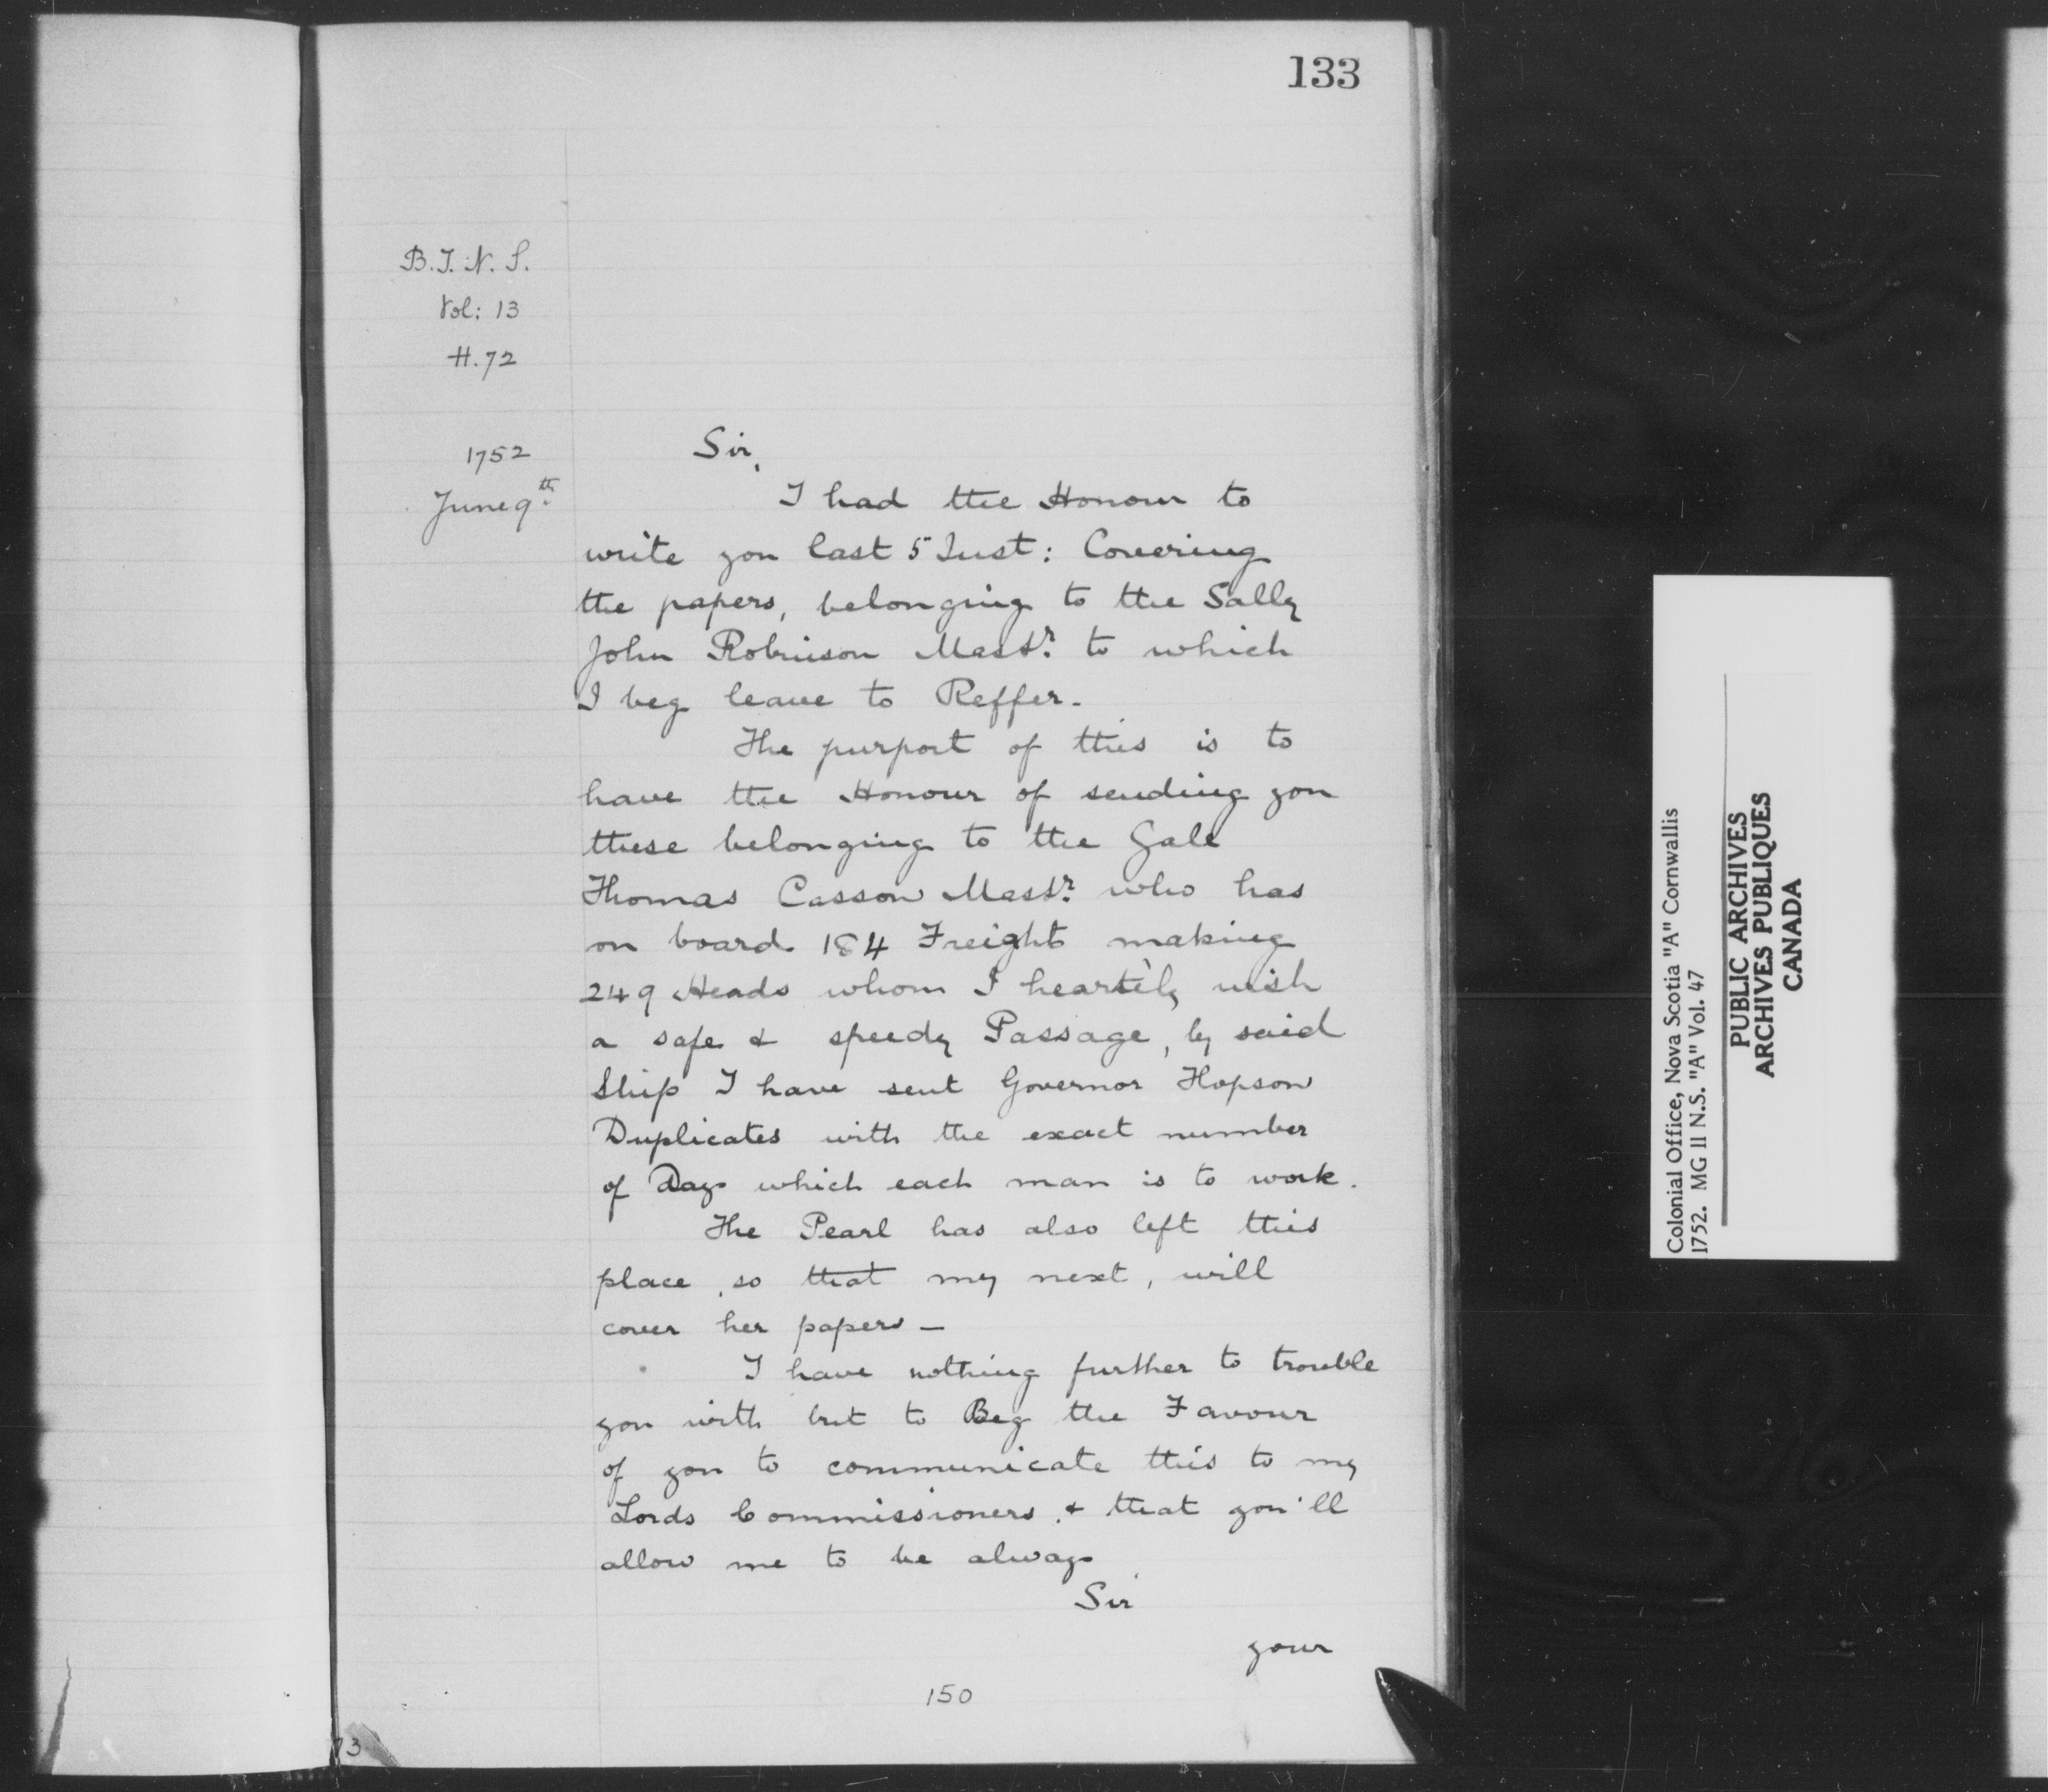 133
B.T.N.S.
Vol: 13
H.72
1752
June 9th
Sir,
I had the Honour to
write you last 5 Inst: Covering
the papers, belonging to the Sally
John Robinson Mastr. to which
I beg leave to Reffer.
The purport of this is to
have the Honour of sending you
these belonging to the Gale
Thomas Casson Mastr. who has
on board 184 Freights making
249 Heads whom I heartily wish
a safe & speedy Passage, by said
Ship I have sent Governor Hopson
Duplicates with the exact number
of Days which each man is to work.
The Pearl has also left this
place, so that my next, will
cover her papers —
I have nothing further to trouble
you with but to Beg the Favour
of you to communicate this to my
Lords Commissioners. & that you'll
allow me to be always
Sir
your
150
73
Colonial Office, Nova Scotia "A" Cornwallis
1752. MG 11 N.S. "A" Vol. 47
PUBLIC ARCHIVES
ARCHIVES PUBLIQUES
CANADA